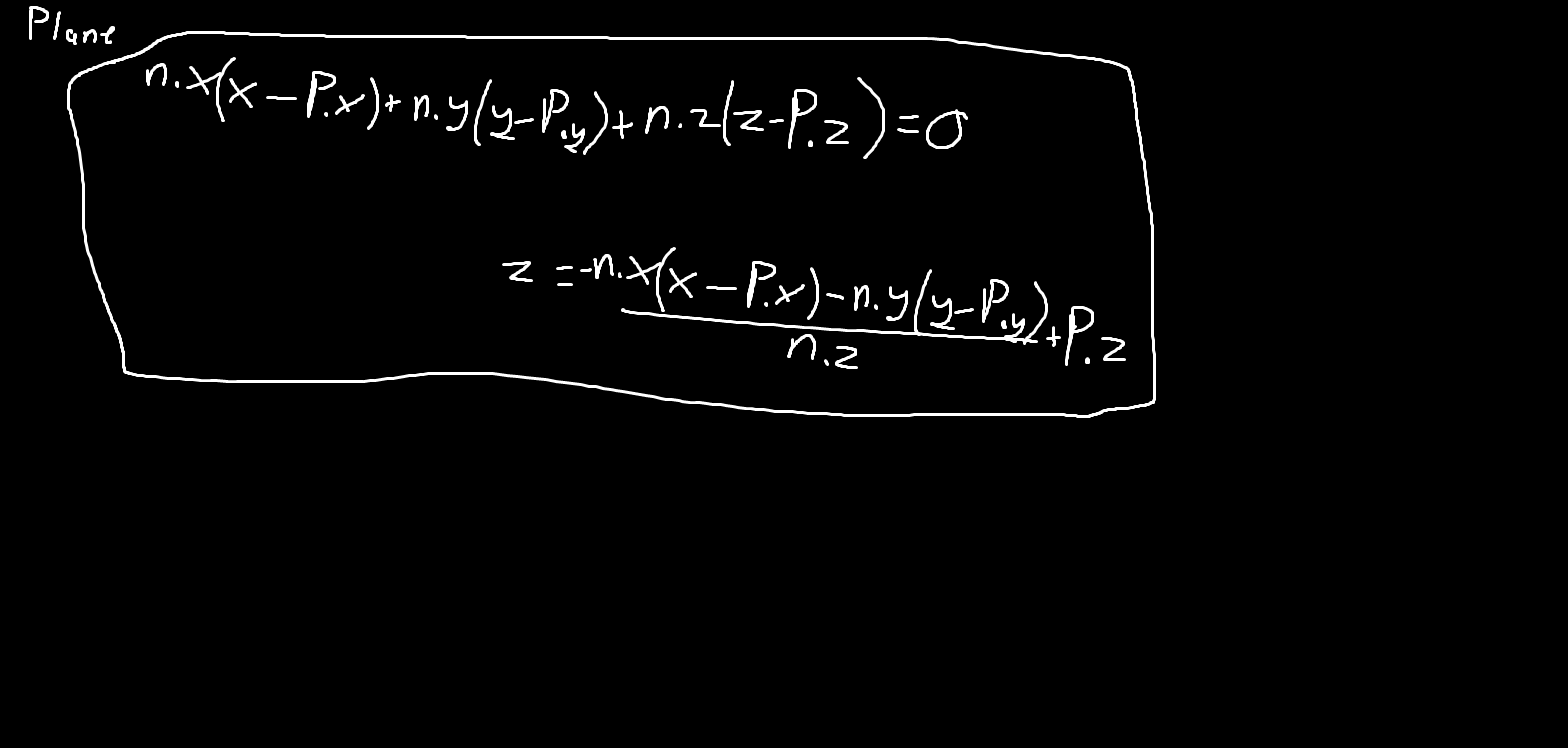 Plane
n.x(x-P.x)+n.y(y-P.y)+n.z(z-P.z)=0
z=-n.x(x-P.x)-n.y(y-P.y)+P.z
n.z